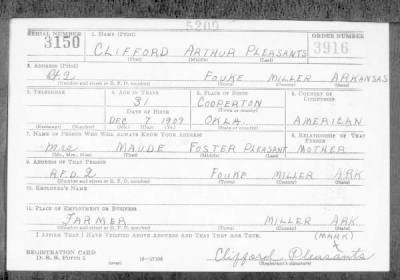 5209
SERIAL NUMBER 1. NAME (Print) ORDER NUMBER
3150 CLIFFORD ARTHUR PLEASANTS 3916
(First) (Middle) (Last)
2. ADDRESS (Print)
Rt 2 FOUKE MILLER ARKANSAS
(Number and street or R. F. D. number) (Town) (County) (State)
3. TELEPHONE 4. AGE IN YEARS 5. PLACE OF BIRTH 6. COUNTRY OF CITIZENSHIP
31 COOPERTON
DATE OF BIRTH (Town or county)
DEC 7 1909 OKLA. AMERICAN
(Exchange) (Number) (Mo.) (Day) (Yr.) (State or country)
7. NAME OF PERSON WHO WILL ALWAYS KNOW YOUR ADDRESS 8. RELATIONSHIP OF THAT PERSON
Mrs MAUDE FOSTER PLEASANT MOTHER
(Mr., Mrs., Miss) (First) (Middle) (Last)
9. ADDRESS OF THAT PERSON
R.F.D. 2 FOUKE MILLER ARK
(Number and street or R. F. D. number) (Town) (County) (State)
10. EMPLOYER'S NAME
11. PLACE OF EMPLOYMENT OR BUSINESS
FARMER MILLER ARK.
(Number and street or R. F. D. number) (Town) (County) (State)
I AFFIRM THAT I HAVE VERIFIED ABOVE ANSWERS AND THAT THEY ARE TRUE.
(MARK)
X
REGISTRATION CARD Clifford Pleasants
D. S. S. Form 1 (over) (Registrant's signature)